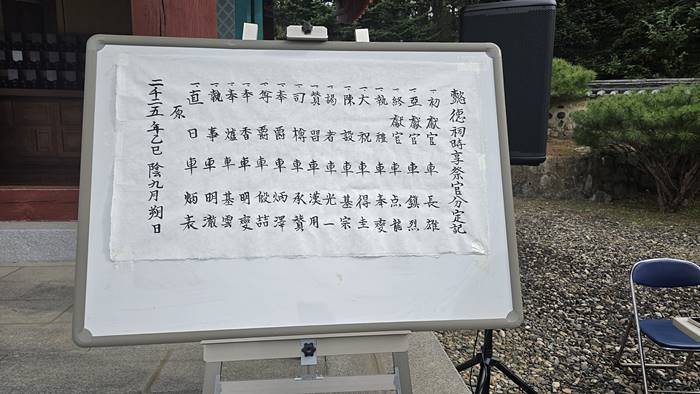 懿德祠時享祭官分定記
一初獻官 車 長雄
一亞獻官 車 鎭烈
一終獻官 車 点龍
一執禮 車 奉燮
一大祝 車 得圭
一陳設 車 基宗
一謁者 車 光一
一贊者 車 漢用
一司樽 車 承贊
一奉爵 車 炳澤
一奠爵 車 喆
一奉香 車 明燮
一奉爐 車 基雲
一執事 車 明澈
一直日 車 炳表
原
二千二五年乙巳 陰九月朔日